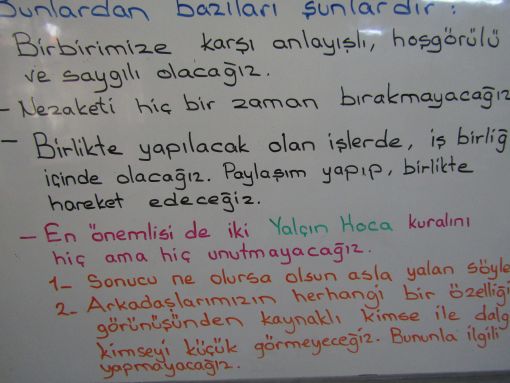 Bunlardan bazıları şunlardır:
Birbirimize karşı anlayışlı, hoşgörülü
ve saygılı olacağız.
- Nezaketi hiç bir zaman bırakmayacağız
- Birlikte yapılacak olan işlerde, iş birliğ
içinde olacağız. Paylaşım yapıp, birlikte
hareket edeceğiz.
- En önemlisi de iki Yalçın Hoca kuralını
hiç ama hiç unutmayacağız.
1- Sonucu ne olursa olsun asla yalan söyle
2- Arkadaşlarımızın herhangi bir özelliği
görünüşünden kaynaklı kimse ile dalg
kimseyi küçük görmeyeceğiz. Bununla ilgili
yapmayacağız.